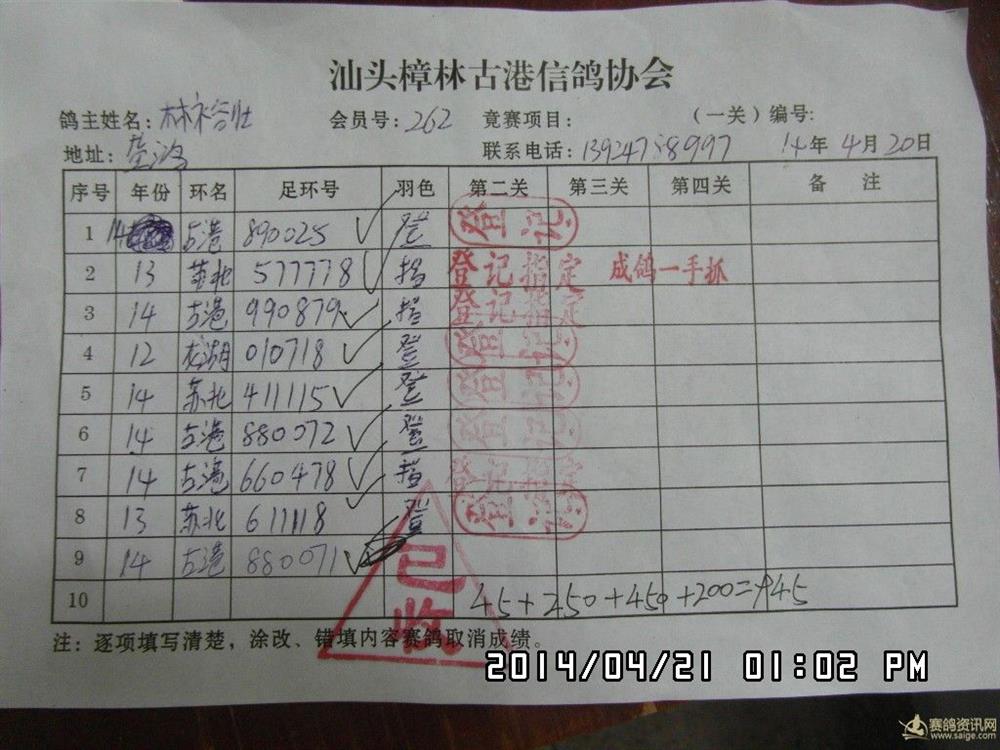 汕头樟林古港信鸽协会
鸽主姓名: 会员号: 262 竟赛项目: (一关) 编号:
地址: 联系电话: 13924788997 14年 4月 20日
序号 年份 环名 足环号 羽色 第二关 第三关 第四关 备 注
1 14 古港 890025 登 登记
2 13 苏北 577778 指 登记指定 成鸽一手抓
3 14 古港 990879 指 登记指定
4 12 龙湖 010718 登 登记
5 14 苏北 411115 登 登记
6 14 古港 880072 登 登记
7 14 古港 660478 指 登记指定
8 13 苏北 611118 登 登记
9 14 古港 880071
10 45+250+450+200=945
已收
注: 逐项填写清楚, 涂改、错填内容赛鸽取消成绩。
2014/04/21 01:02 PM
赛鸽资讯网
www.saige.com